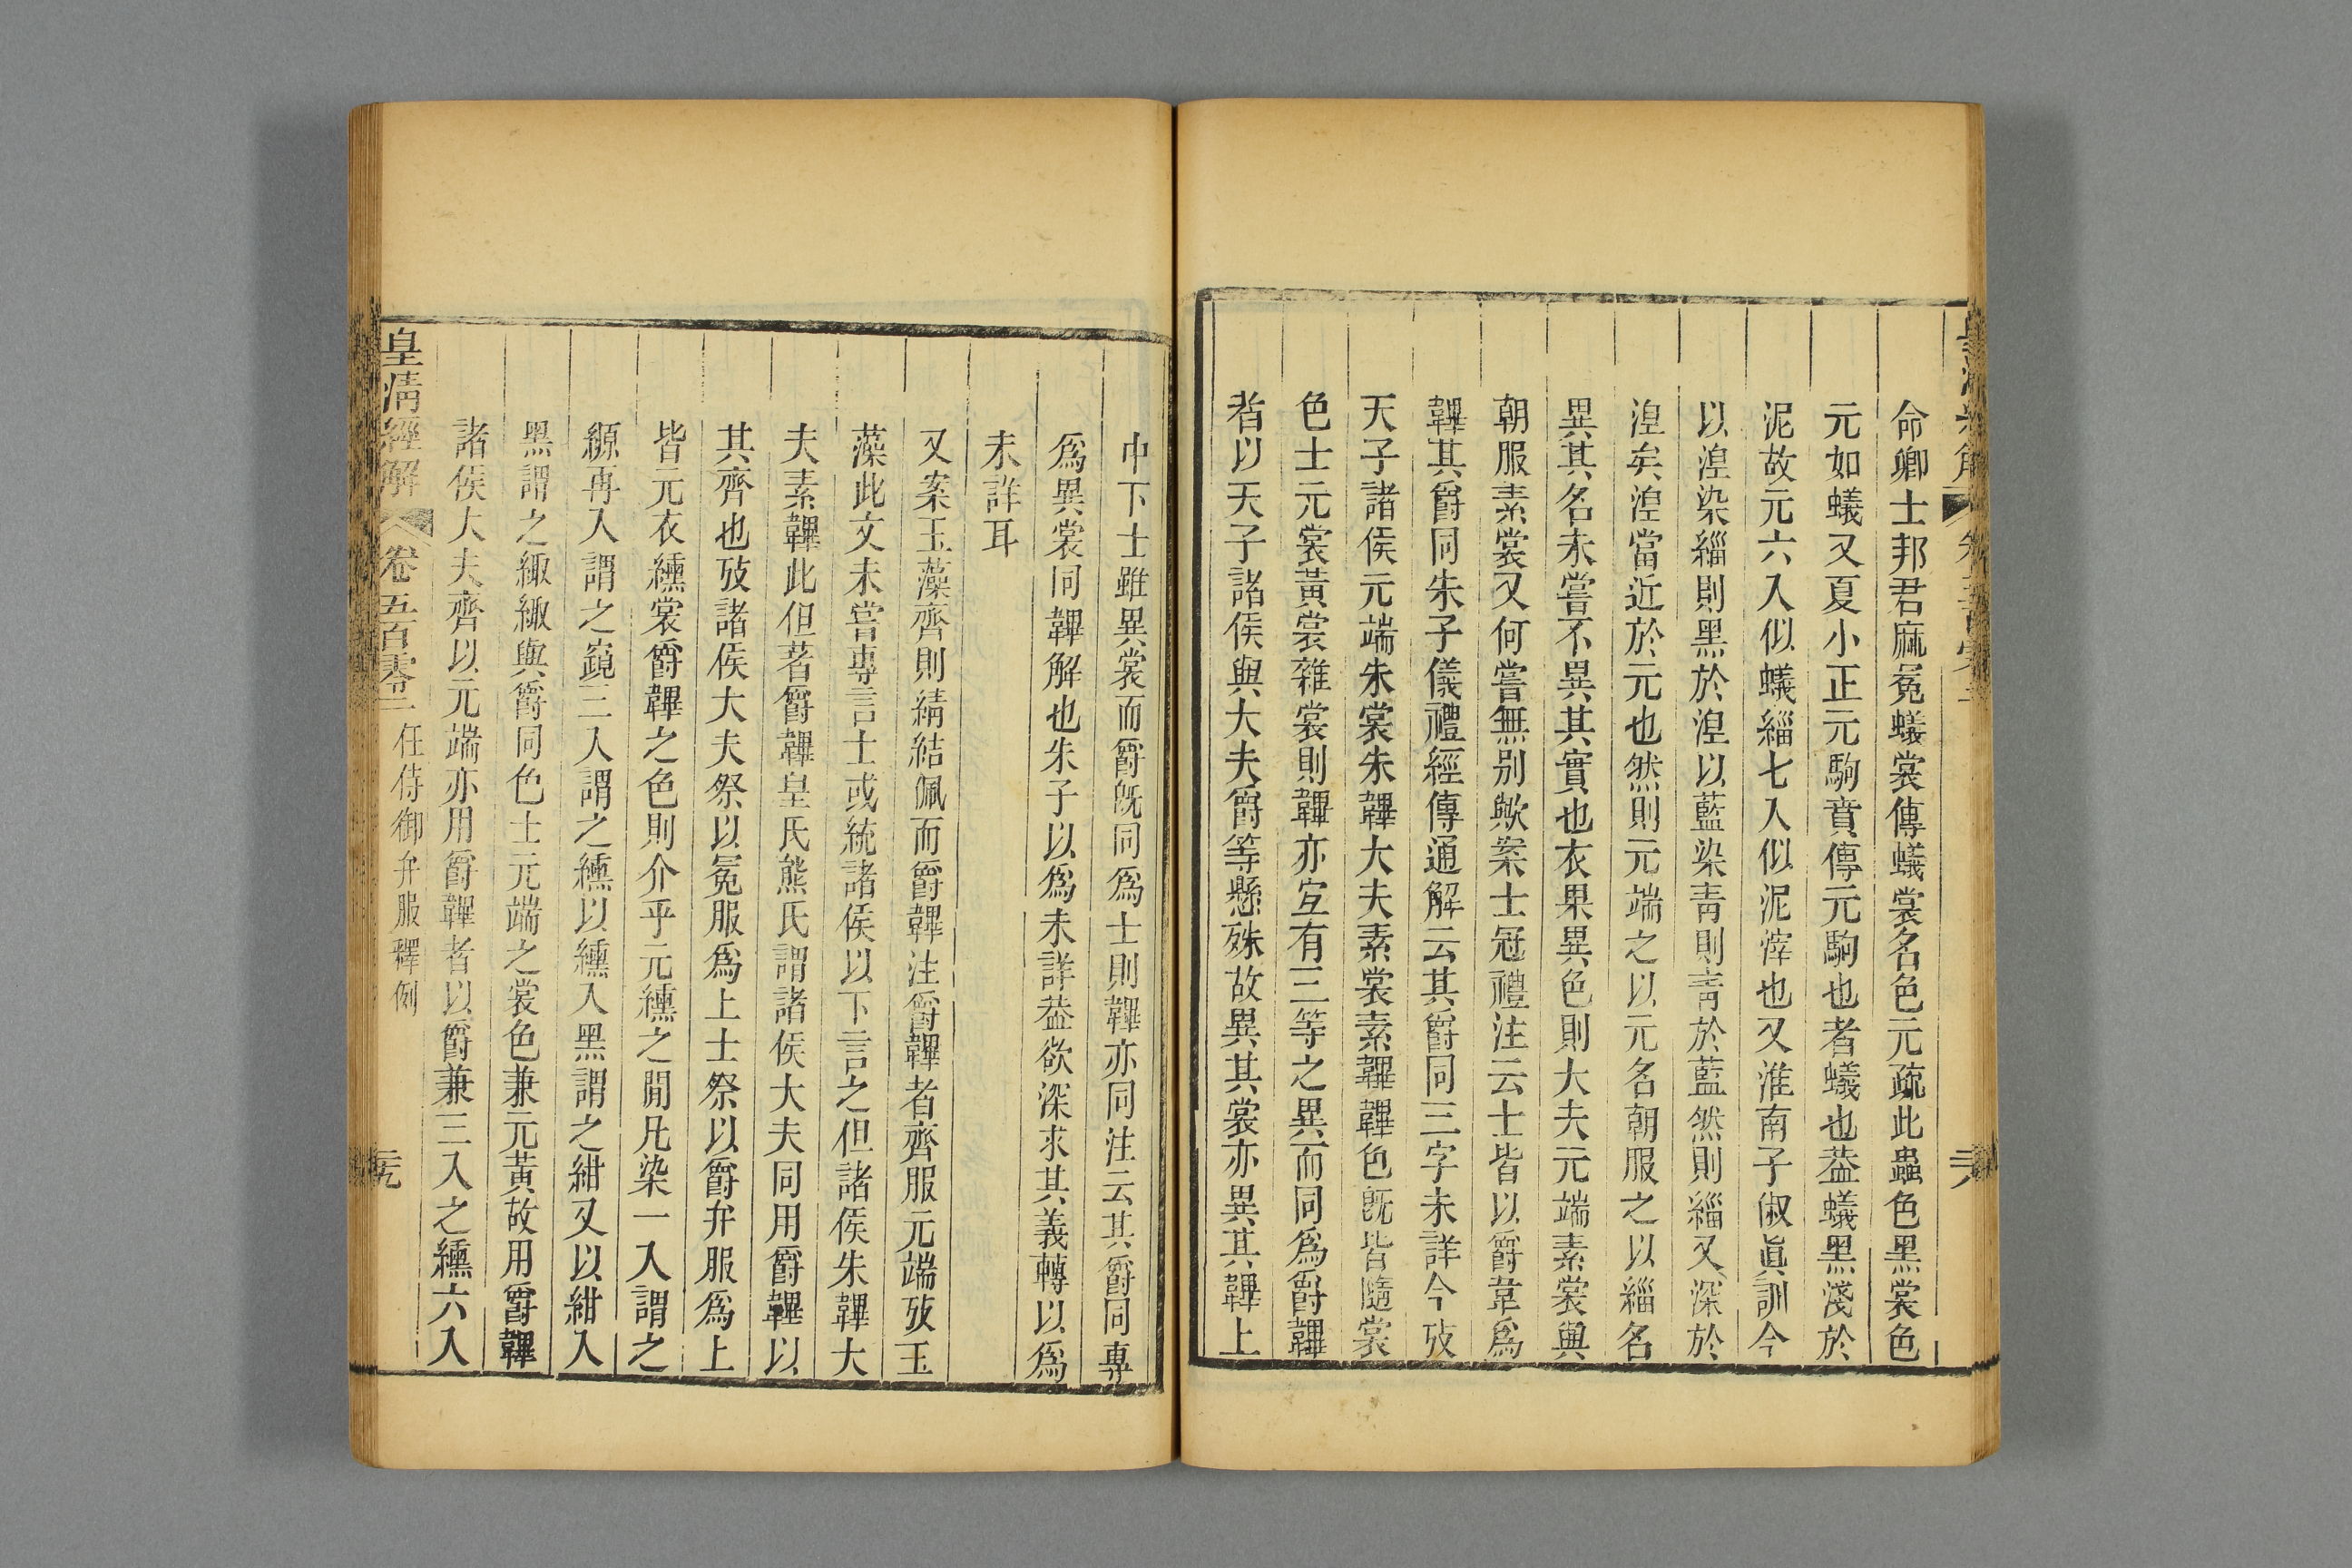 命卿士邦君麻冕蟻裳傳蟻裳名色元疏此蟲色黑裳色
元如蟻又夏小正元駒賁傳元駒也者蟻也葢蟻黑淺於
泥故元六入似蟻緇七入似泥滓也又淮南子俶眞訓今
以湼染緇則黑於湼以藍染靑則靑於藍然則緇又深於
湼矣湼當近於元也然則元端之以元名朝服之以緇名
異其名未嘗不異其實也衣果異色則大夫元端素裳與
朝服素裳又何嘗無別歟案士冠禮注云士皆以爵韋爲
韠其爵同朱子儀禮經傳通解云其爵同三字未詳今攷
天子諸侯元端朱裳朱韠大夫素裳素韠韠色旣皆隨裳
色士元裳黃裳雜裳則韠亦宜有三等之異而同爲爵韠
者以天子諸侯與大夫爵等懸殊故異其裳亦異其韠上
中下士雖異裳而爵旣同爲士則韠亦同注云其爵同專
爲異裳同韠解也朱子以爲未詳葢欲深求其義轉以爲
未詳耳
又案玉藻齊則綪結佩而爵韠注爵韠者齊服元端攷玉
藻此文未嘗專言士或統諸侯以下言之但諸侯朱韠大
夫素韠此但著爵韠皇氏熊氏謂諸侯大夫同用爵韠以
其齊也攷諸侯大夫祭以冕服爲上士祭以爵弁服爲上
皆元衣纁裳爵韠之色則介乎元纁之閒凡染一入謂之
縓再入謂之䞓三入謂之纁以纁入黑謂之紺又以紺入
黑謂之緅緅與爵同色士元端之裳色兼元黃故用爵韠
諸侯大夫齊以元端亦用爵韠者以爵兼三入之纁六入
皇清經解
卷五百零三
任侍御弁服釋例